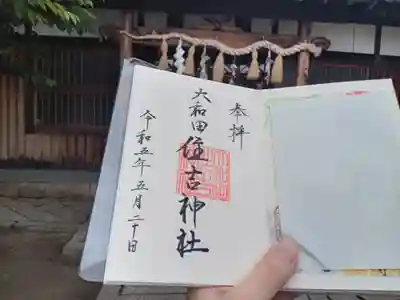 奉拝
大和田
住吉神社
令和五年五月二十日